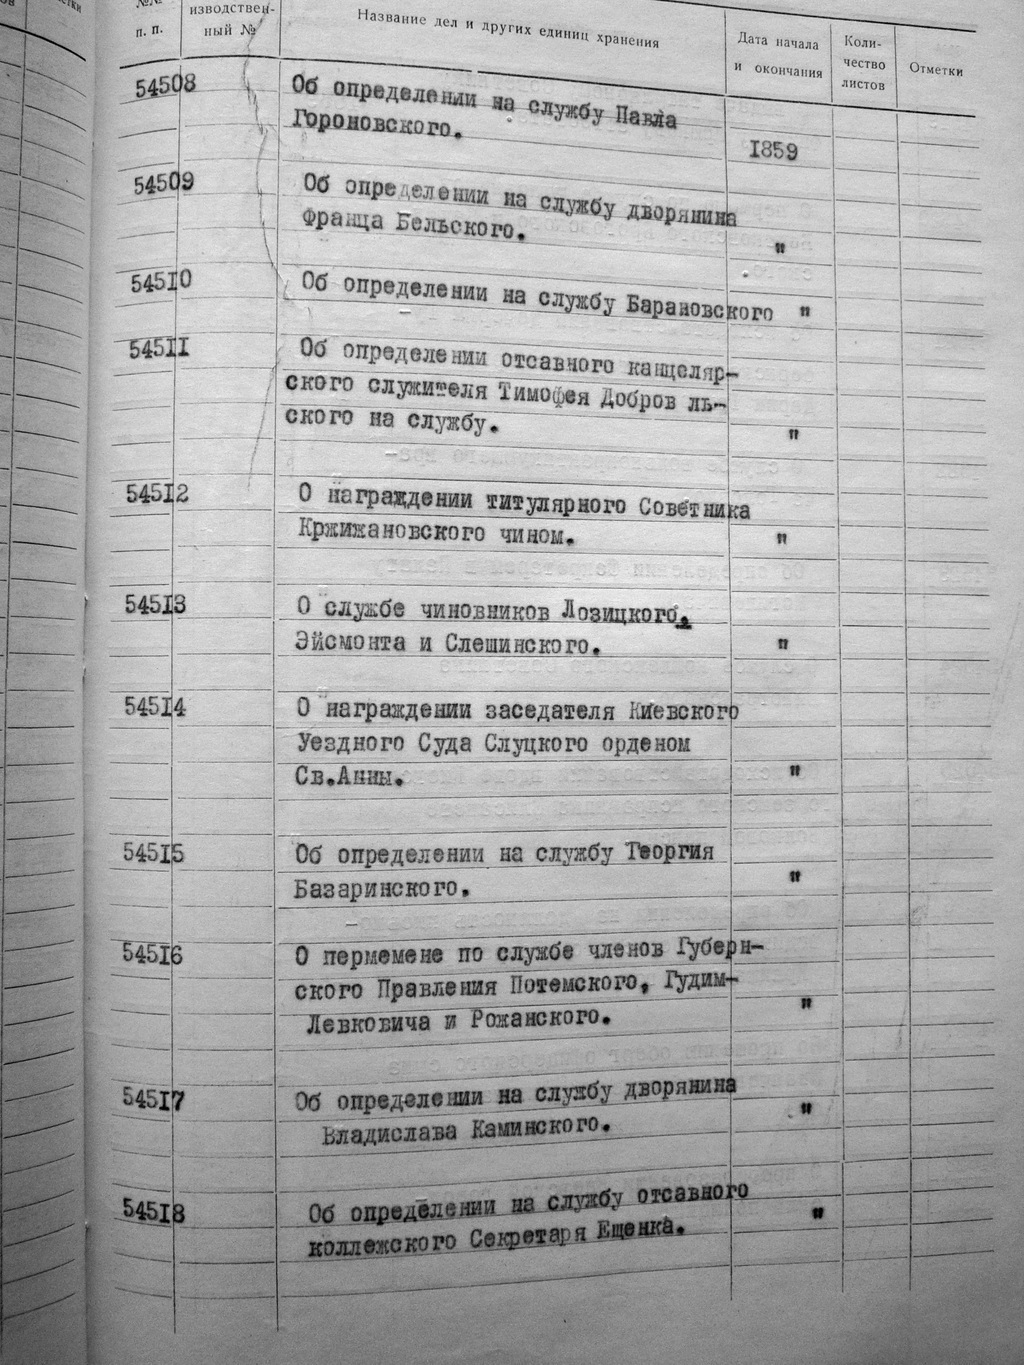 №№ изводствен- Название дел и других единиц хранения Дата начала Коли-
п. п. ный № и окончания чество Отметки
листов
54508 Об определении на службу Павла
Гороновского. 1859
54509 Об определении на службу дворянина
Франца Бельского. "
54510 Об определении на службу Барановского "
54511 Об определении отсавного канцеляр-
ского служителя Тимофея Добров ль-
ского на службу. "
54512 О награждении титулярного Советника
Кржижановского чином. "
54513 О службе чиновников Лозицкого,
Эйсмонта и Слешинского. "
54514 О награждении заседателя Киевского
Уездного Суда Слуцкого орденом
Св.Анны. "
54515 Об определении на службу Георгия
Базаринского. "
54516 О пермемене по службе членов Губерн-
ского Правления Потемского, Гудим-
Левковича и Рожанского. "
54517 Об определении на службу дворянина
Владислава Каминского. "
54518 Об определении на службу отсавного "
коллежского Секретаря Ещенка.